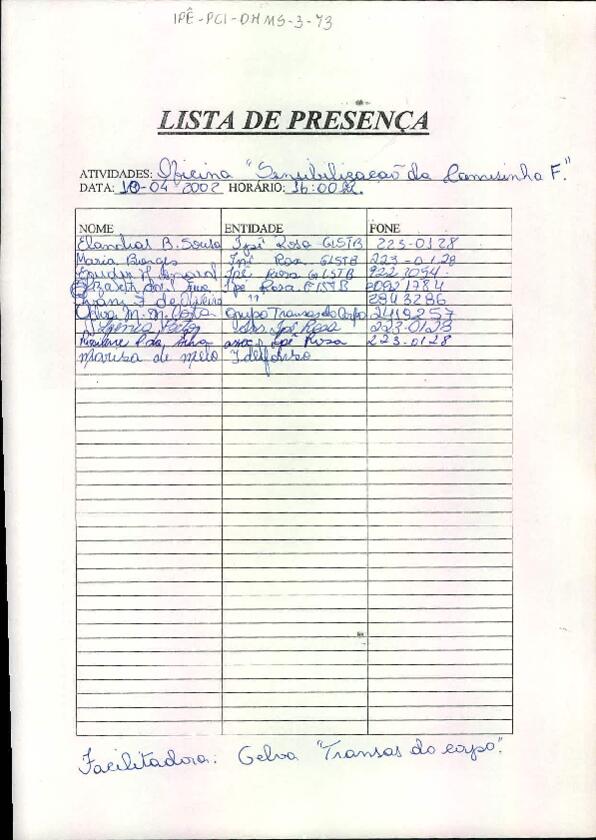 IPÊ-PCI-DHMS-3-73
LISTA DE PRESENÇA
ATIVIDADES: Oficina "Sensibilização da Camisinha F."
DATA: 10-04 2002 HORÁRIO: 16:00
NOME ENTIDADE FONE
B. Sousa Ipê Rosa GLSTB 223-0128
Maria Borges Ipê Rosa GLSTB 223-0128
Ipê Rosa GLSTB
Ipê Rosa
F. de Oliveira " 2943286
M. M. Costa Grupo Transas do Corpo 2419257
Ipê Rosa 223-0128
P. da Silva assoc. Ipê Rosa 223-0128
Marisa de melo Idelfonso
Facilitadora: Gelva "Transas do corpo".